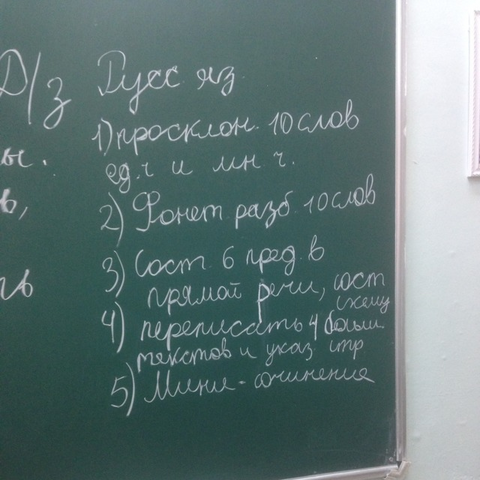 Д/з Русс яз.
ы.
1) просклон. 10 слов
в,
ед.ч и мн ч.
2) Фонет. разб. 10 слов
3) Сост. 6 пред. в
прямой речи, сост
схему
4) переписать 4 больш
текстов и указ стр
5) Мини-сочинение